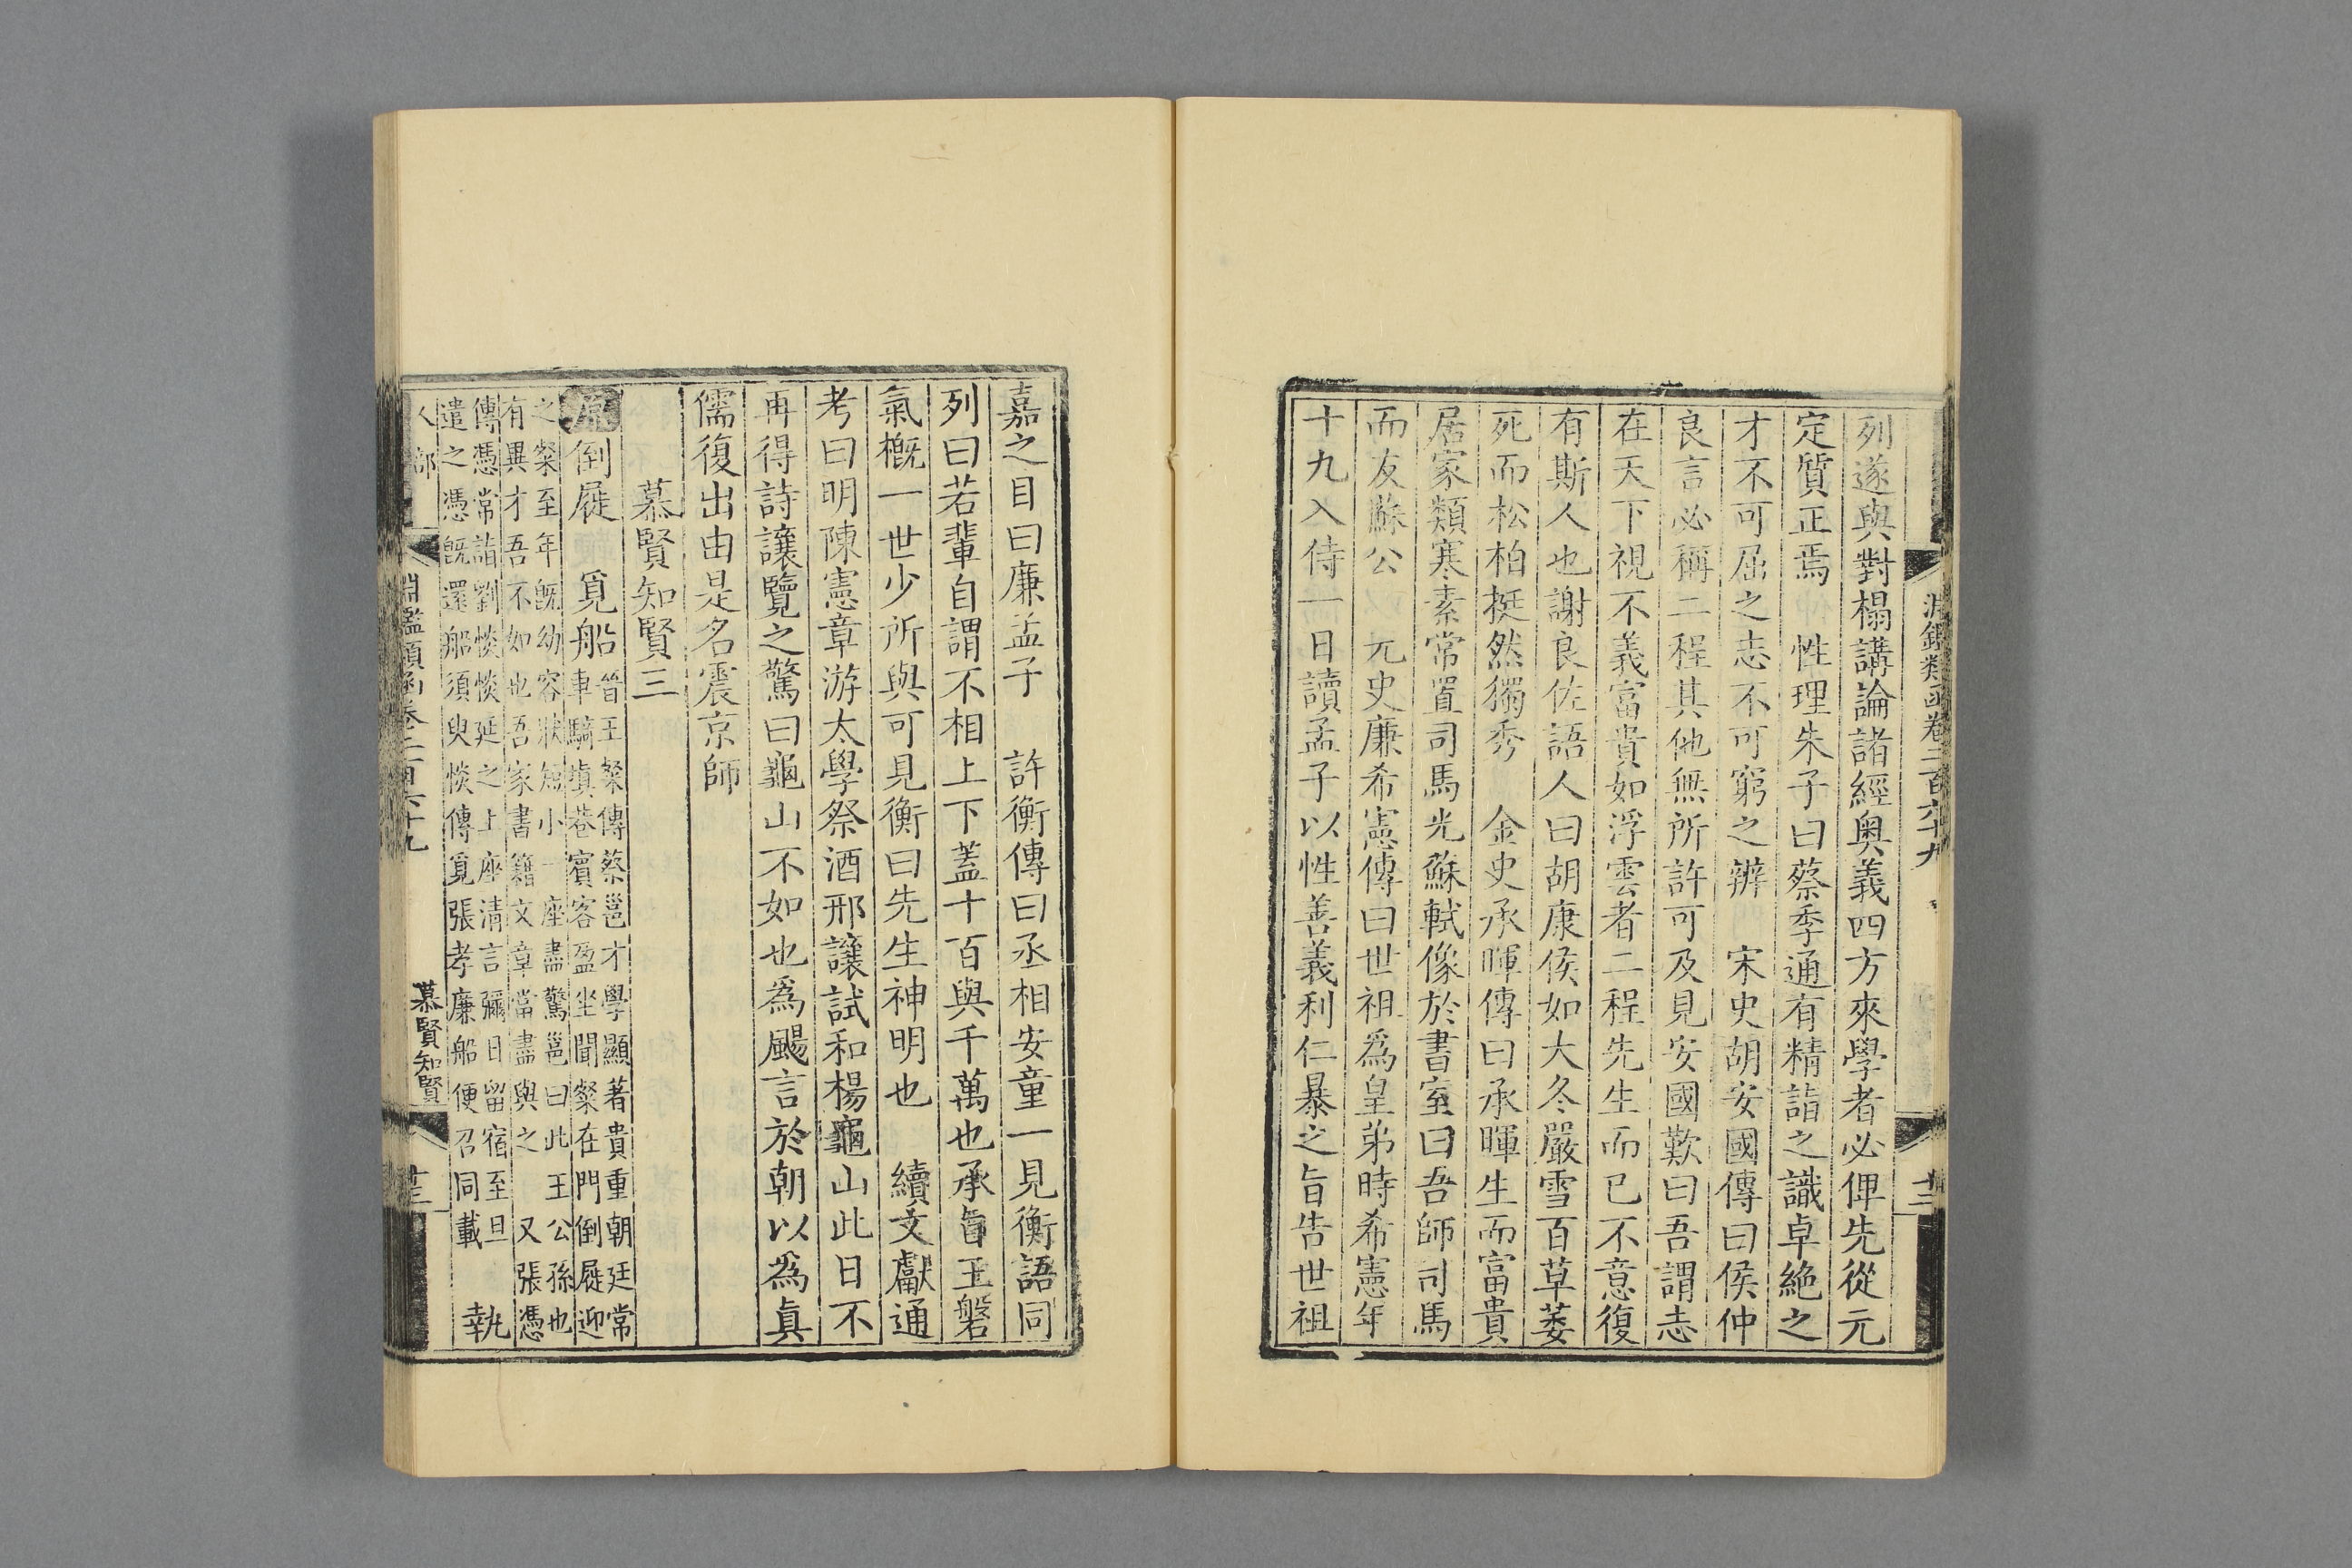 淵鑑類函卷二百六十九
列遂與對榻講論諸經奧義四方來學者必俾先從元
定質正焉　性理朱子曰蔡季通有精詣之識卓絶之
才不可屈之志不可窮之辨　宋史胡安國傳曰侯仲
良言必稱二程其他無所許可及見安國歎曰吾謂志
在天下視不義富貴如浮雲者二程先生而已不意復
有斯人也謝良佐語人曰胡康侯如大冬嚴雪百草萎
死而松柏挺然獨秀　金史承暉傳曰承暉生而富貴
居家類寒素常置司馬光蘇軾像於書室曰吾師司馬
而友蘇公　元史廉希憲傳曰世祖爲皇弟時希憲年
十九入侍一日讀孟子以性善義利仁暴之旨告世祖
嘉之目曰廉孟子　許衡傳曰丞相安童一見衡語同
列曰若輩自謂不相上下蓋十百與千萬也承旨王磐
氣槪一世少所與可見衡曰先生神明也　續文獻通
考曰明陳憲章游太學祭酒邢讓試和楊龜山此日不
再得詩讓覽之驚曰龜山不如也爲颺言於朝以爲真
儒復出由是名震京師
慕賢知賢三
原倒屣　覓船晉王粲傳蔡邕才學顯著貴重朝廷常
車騎塡巷賓客盈坐聞粲在門倒屣迎
之粲至年旣幼容狀短小一座盡驚邕曰此王公孫也
有異才吾不如也吾家書籍文章當盡與之　又張憑
傳憑常詣劉惔惔延之上座淸言彌日留宿至旦
遣之憑旣還船須臾惔傳覓張孝廉船便召同載　執
人部
淵鑑類函卷二百六十九
慕賢知賢